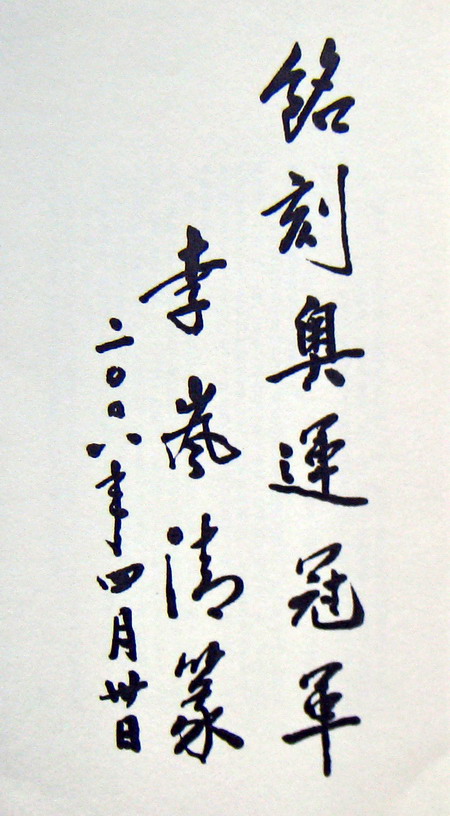 銘刻奧運冠軍
李嵐清篆
二〇〇八年四月卅日